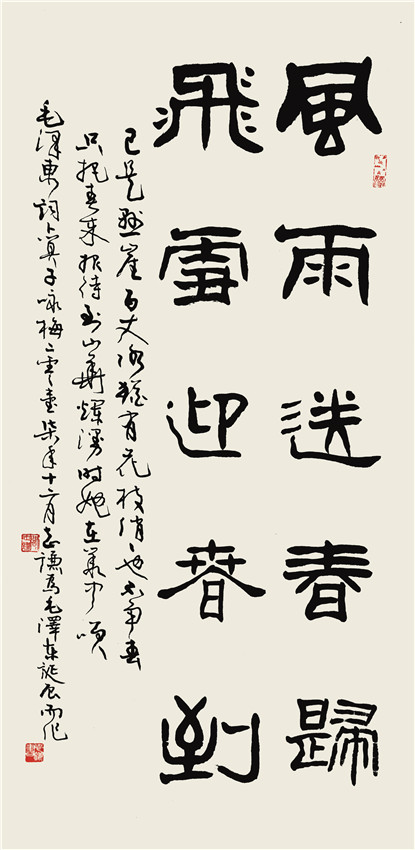 風雨送春歸
飛雪迎春到
已是悬崖百丈冰猶有花枝俏〻也不争春
只把春来报待到山華爛漫時她在叢中笑
毛泽東詞卜算子咏梅二零壹柒年十二月志谦為毛澤東誕辰而作